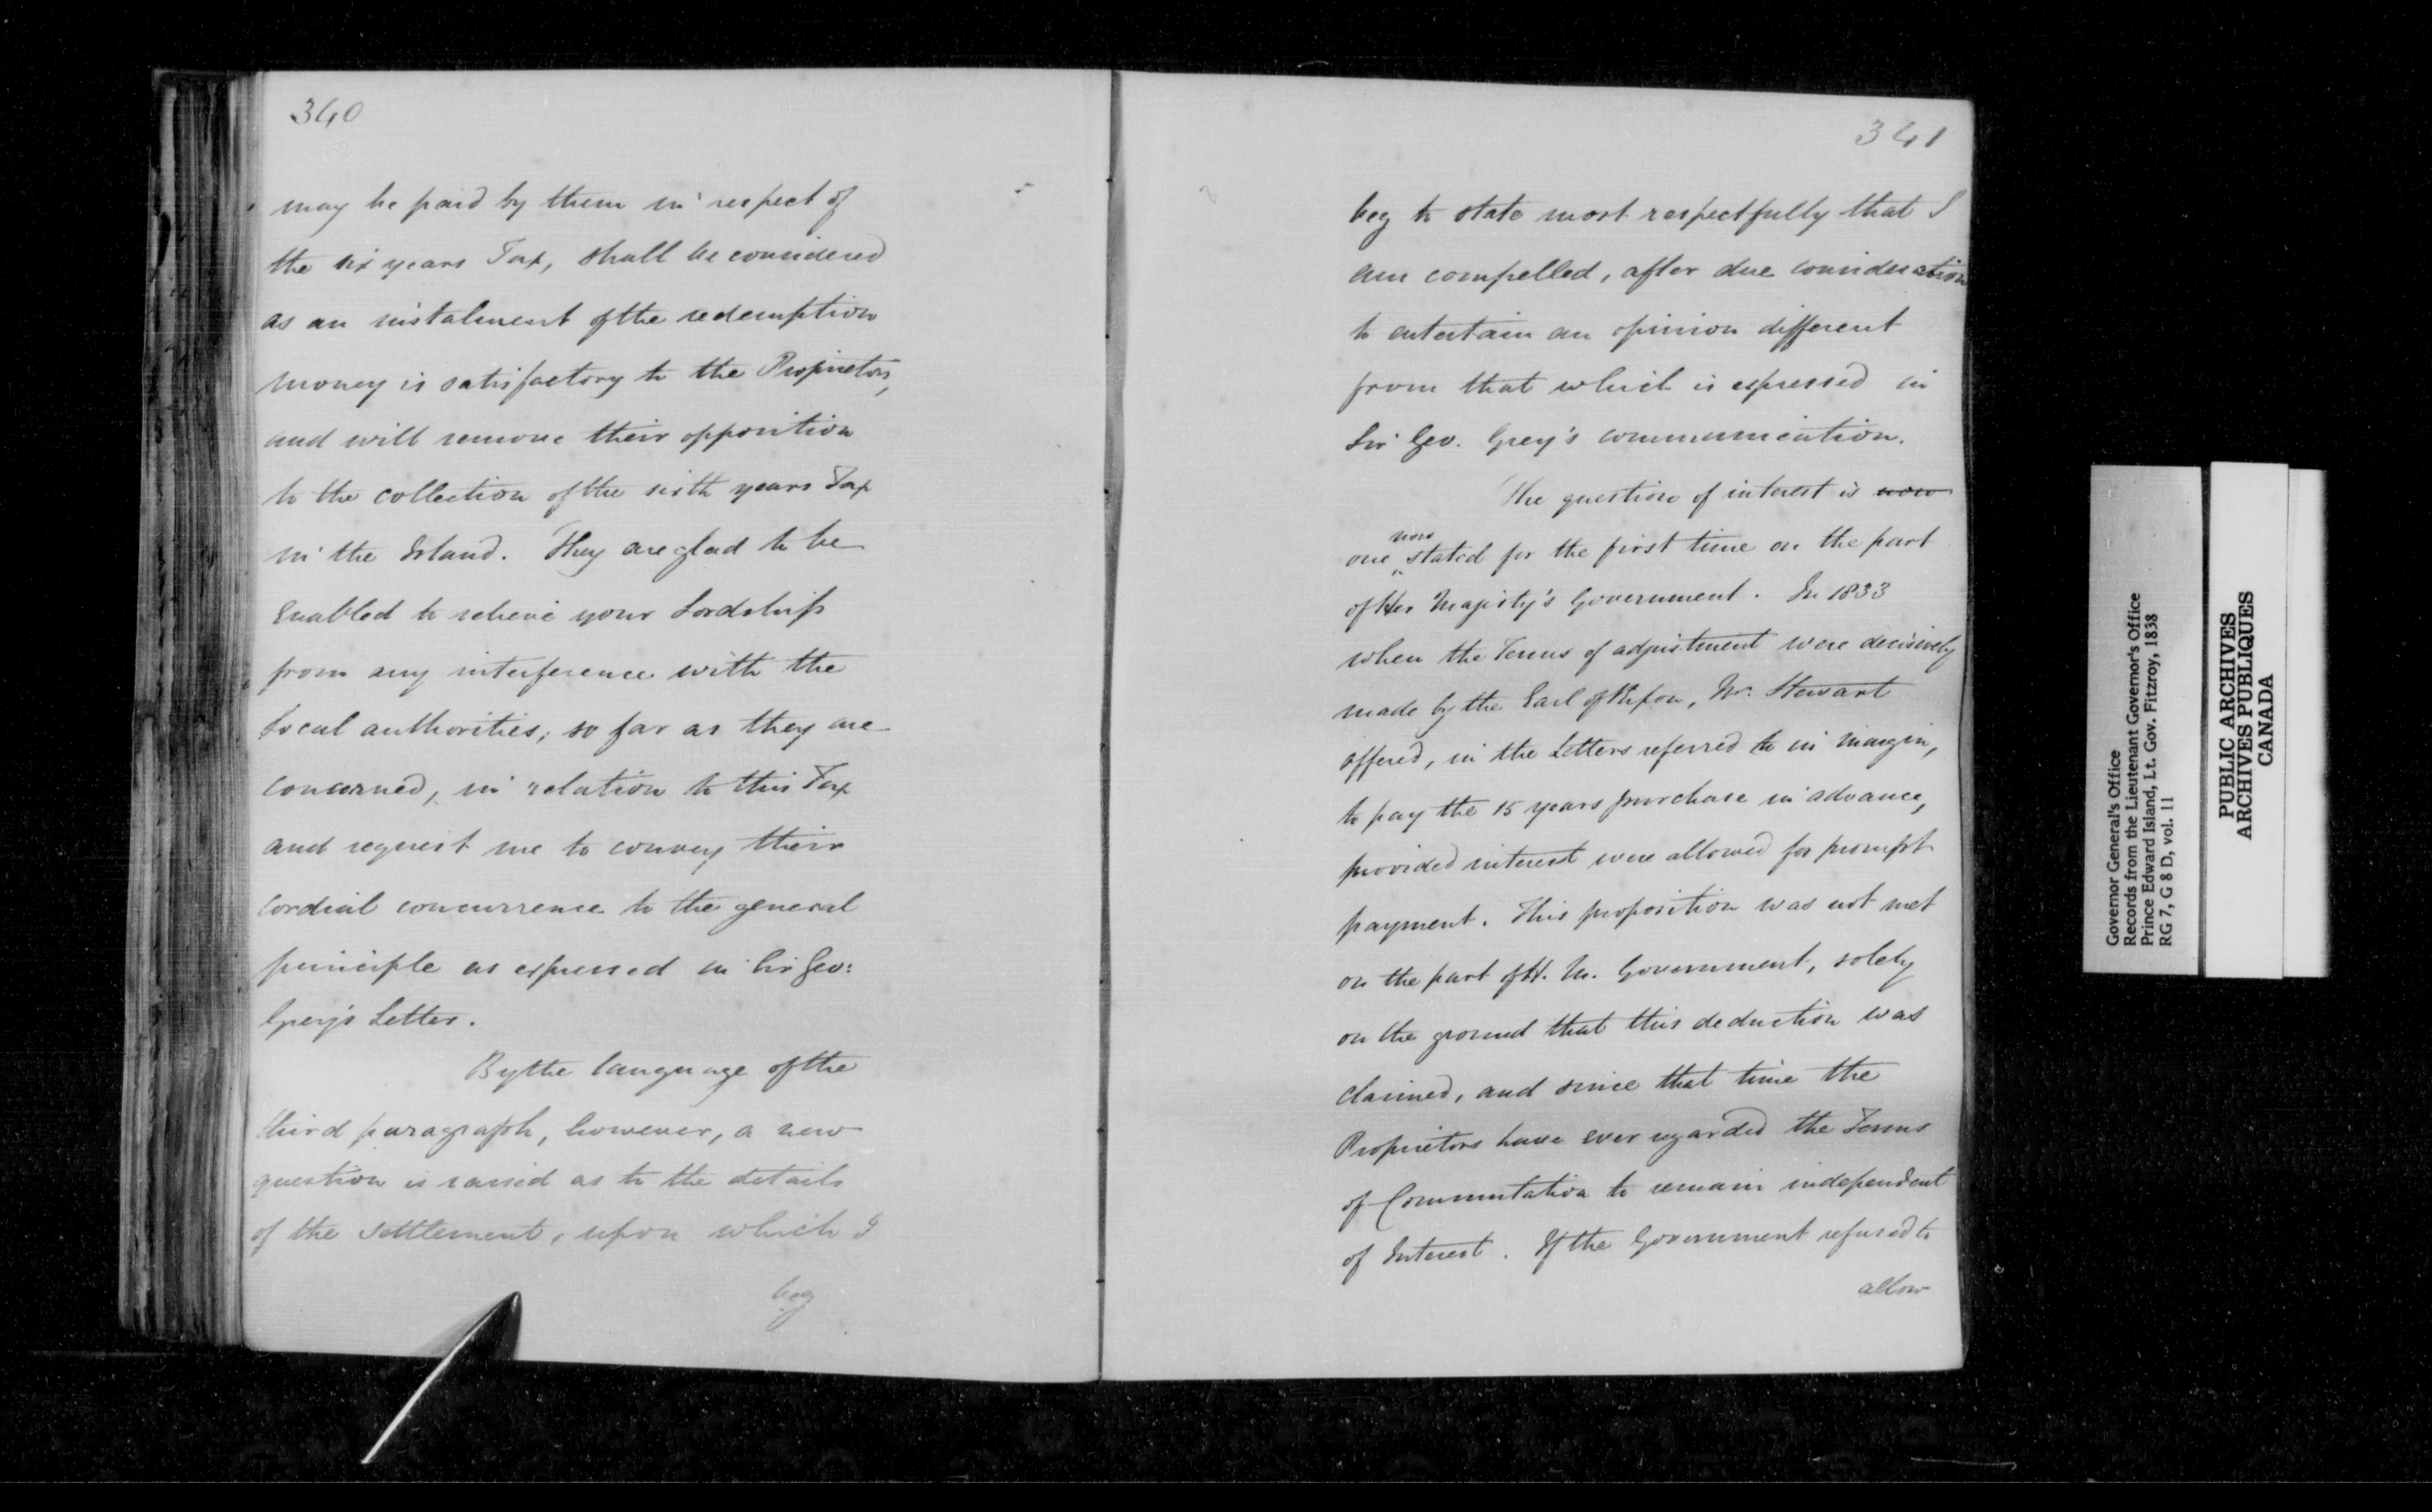 340
may be paid by them in respect of
the six years Tax, shall be considered
as an instalment of the redemption
money is satisfactory to the Proprietors,
and will remove their opposition
to the collection of the sixth years Tax
in the Island. They are glad to be
enabled to relieve your Lordship
from any interference with the
Local authorities, so far as they are
concerned, in relation to this Tax
and request me to convey their
cordial concurrence to the general
principle as expressed in Sir Geo:
Grey's Letter.
By the language of the
third paragraph, however, a new
question is raised as to the details
of the settlement, upon which I
beg
341
beg to state most respectfully that I
am compelled, after due consideration
to entertain an opinion different
from that which is expressed in
Sir Geo. Grey's communication.
The question of interest is now
now
one stated for the first time on the part
of Her Majesty's Government. In 1833
when the Terms of adjustment were decisively
made by the Earl of Ripon, Mr. Stewart
offered, in the Letters referred to in margin,
to pay the 15 years purchase in advance,
provided interest were allowed for prompt
payment. This proposition was not met
on the part of H. M. Government, solely
on the ground that this deduction was
claimed, and since that time the
Proprietors have ever regarded the Terms
of Commutation to remain independent
of Interest. If the Government refused to
allow
Governor General's Office
Records from the Lieutenant Governor's Office
Prince Edward Island, Lt. Gov. Fitzroy, 1838
RG 7, G 8 D, vol. 11
PUBLIC ARCHIVES
ARCHIVES PUBLIQUES
CANADA